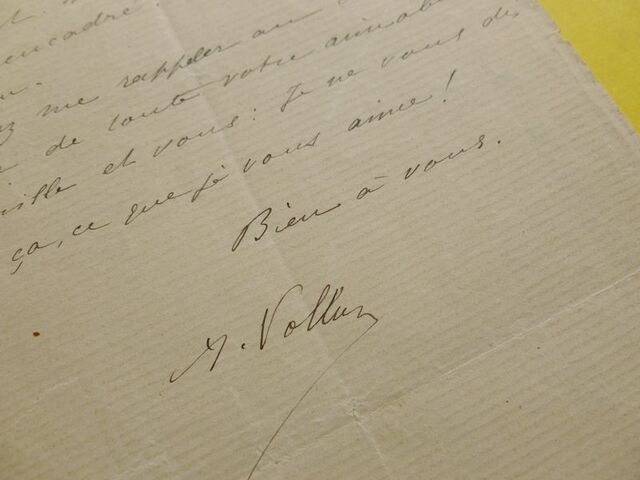 encadré.
me rappeler au
de toute votre aimable
ville et vous: Je ne vous dis
ça, ce que je vous aime!
Bien à vous.
A. Vollon